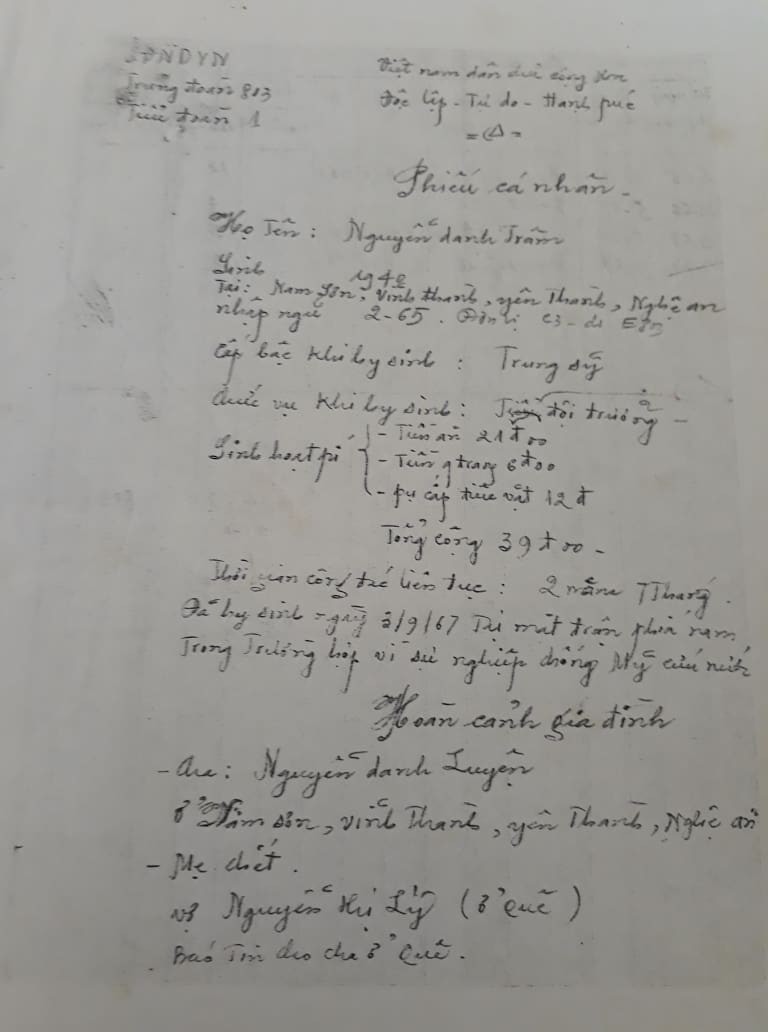 QĐNDVN
Trung đoàn 803
Tiểu đoàn 1
Việt nam dân chủ cộng hòa
Độc lập - Tự do - Hạnh púc
Phiếu cá nhân -
Họ Tên: Nguyễn danh Trâm
Sinh 1942
Tại: Nam Sơn, Vĩnh thành, yên Thành, Nghệ an
nhập ngũ 2-65. Đơn vị c3-d1
Cấp bậc khi hy sinh: Trung sỹ
Chức vụ khi hy sinh: Tiểu đội trưởng -
Sinh hoạt pí
- Tiền ăn 21đ00
- Tiền q trang 6đ00
- pụ cấp tiêu vặt 12đ
Tổng cộng 39đ00 -
Thời gian công tác liên tục: 2 năm 7 Tháng.
Đã hy sinh ngày 3/9/67 Tại mặt trận phía nam
Trong Trường hợp vì sự nghiệp chống Mỹ cứu nước
Hoàn cảnh gia đình
- Cha: Nguyễn danh Luyện
ở Nam Sơn, Vĩnh Thành, yên Thành, Nghệ an
- Mẹ chết.
vợ Nguyễn thị Lý (ở quê)
Báo Tin cho cha ở quê.